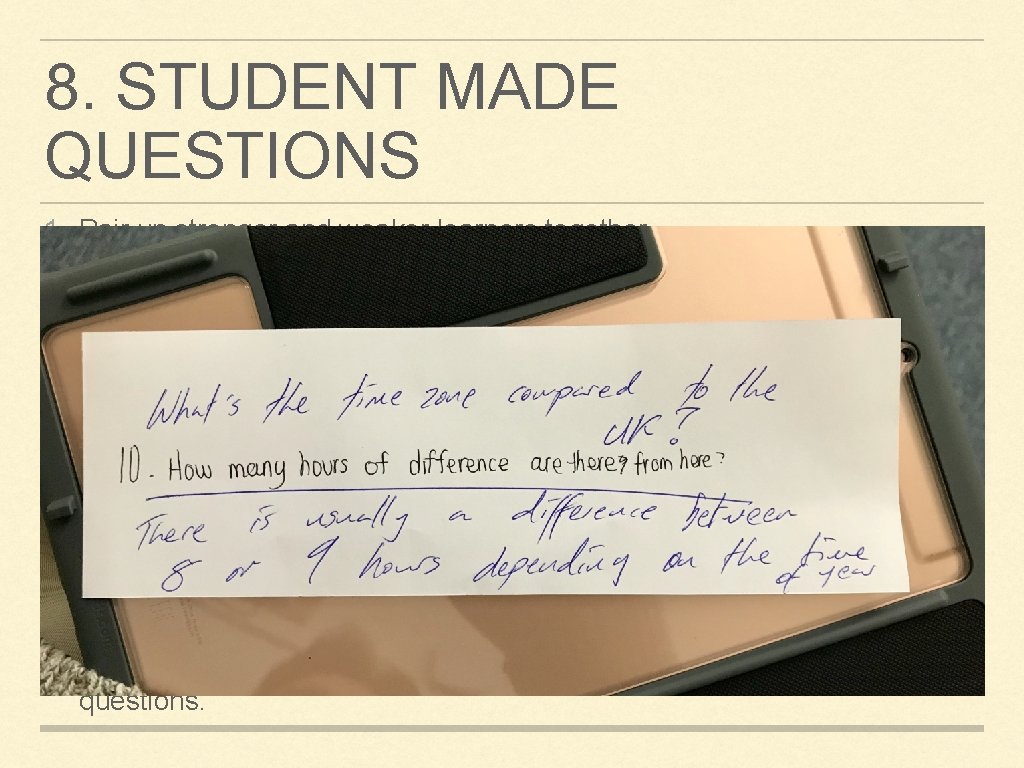 8. STUDENT MADE
QUESTIONS
1. Pair up stronger and weaker learners together
What's the time zone compared to the
UK?
10. How many hours of difference are there? from here?
There is usually a difference between
8 or 9 hours depending on the time
of year
questions.